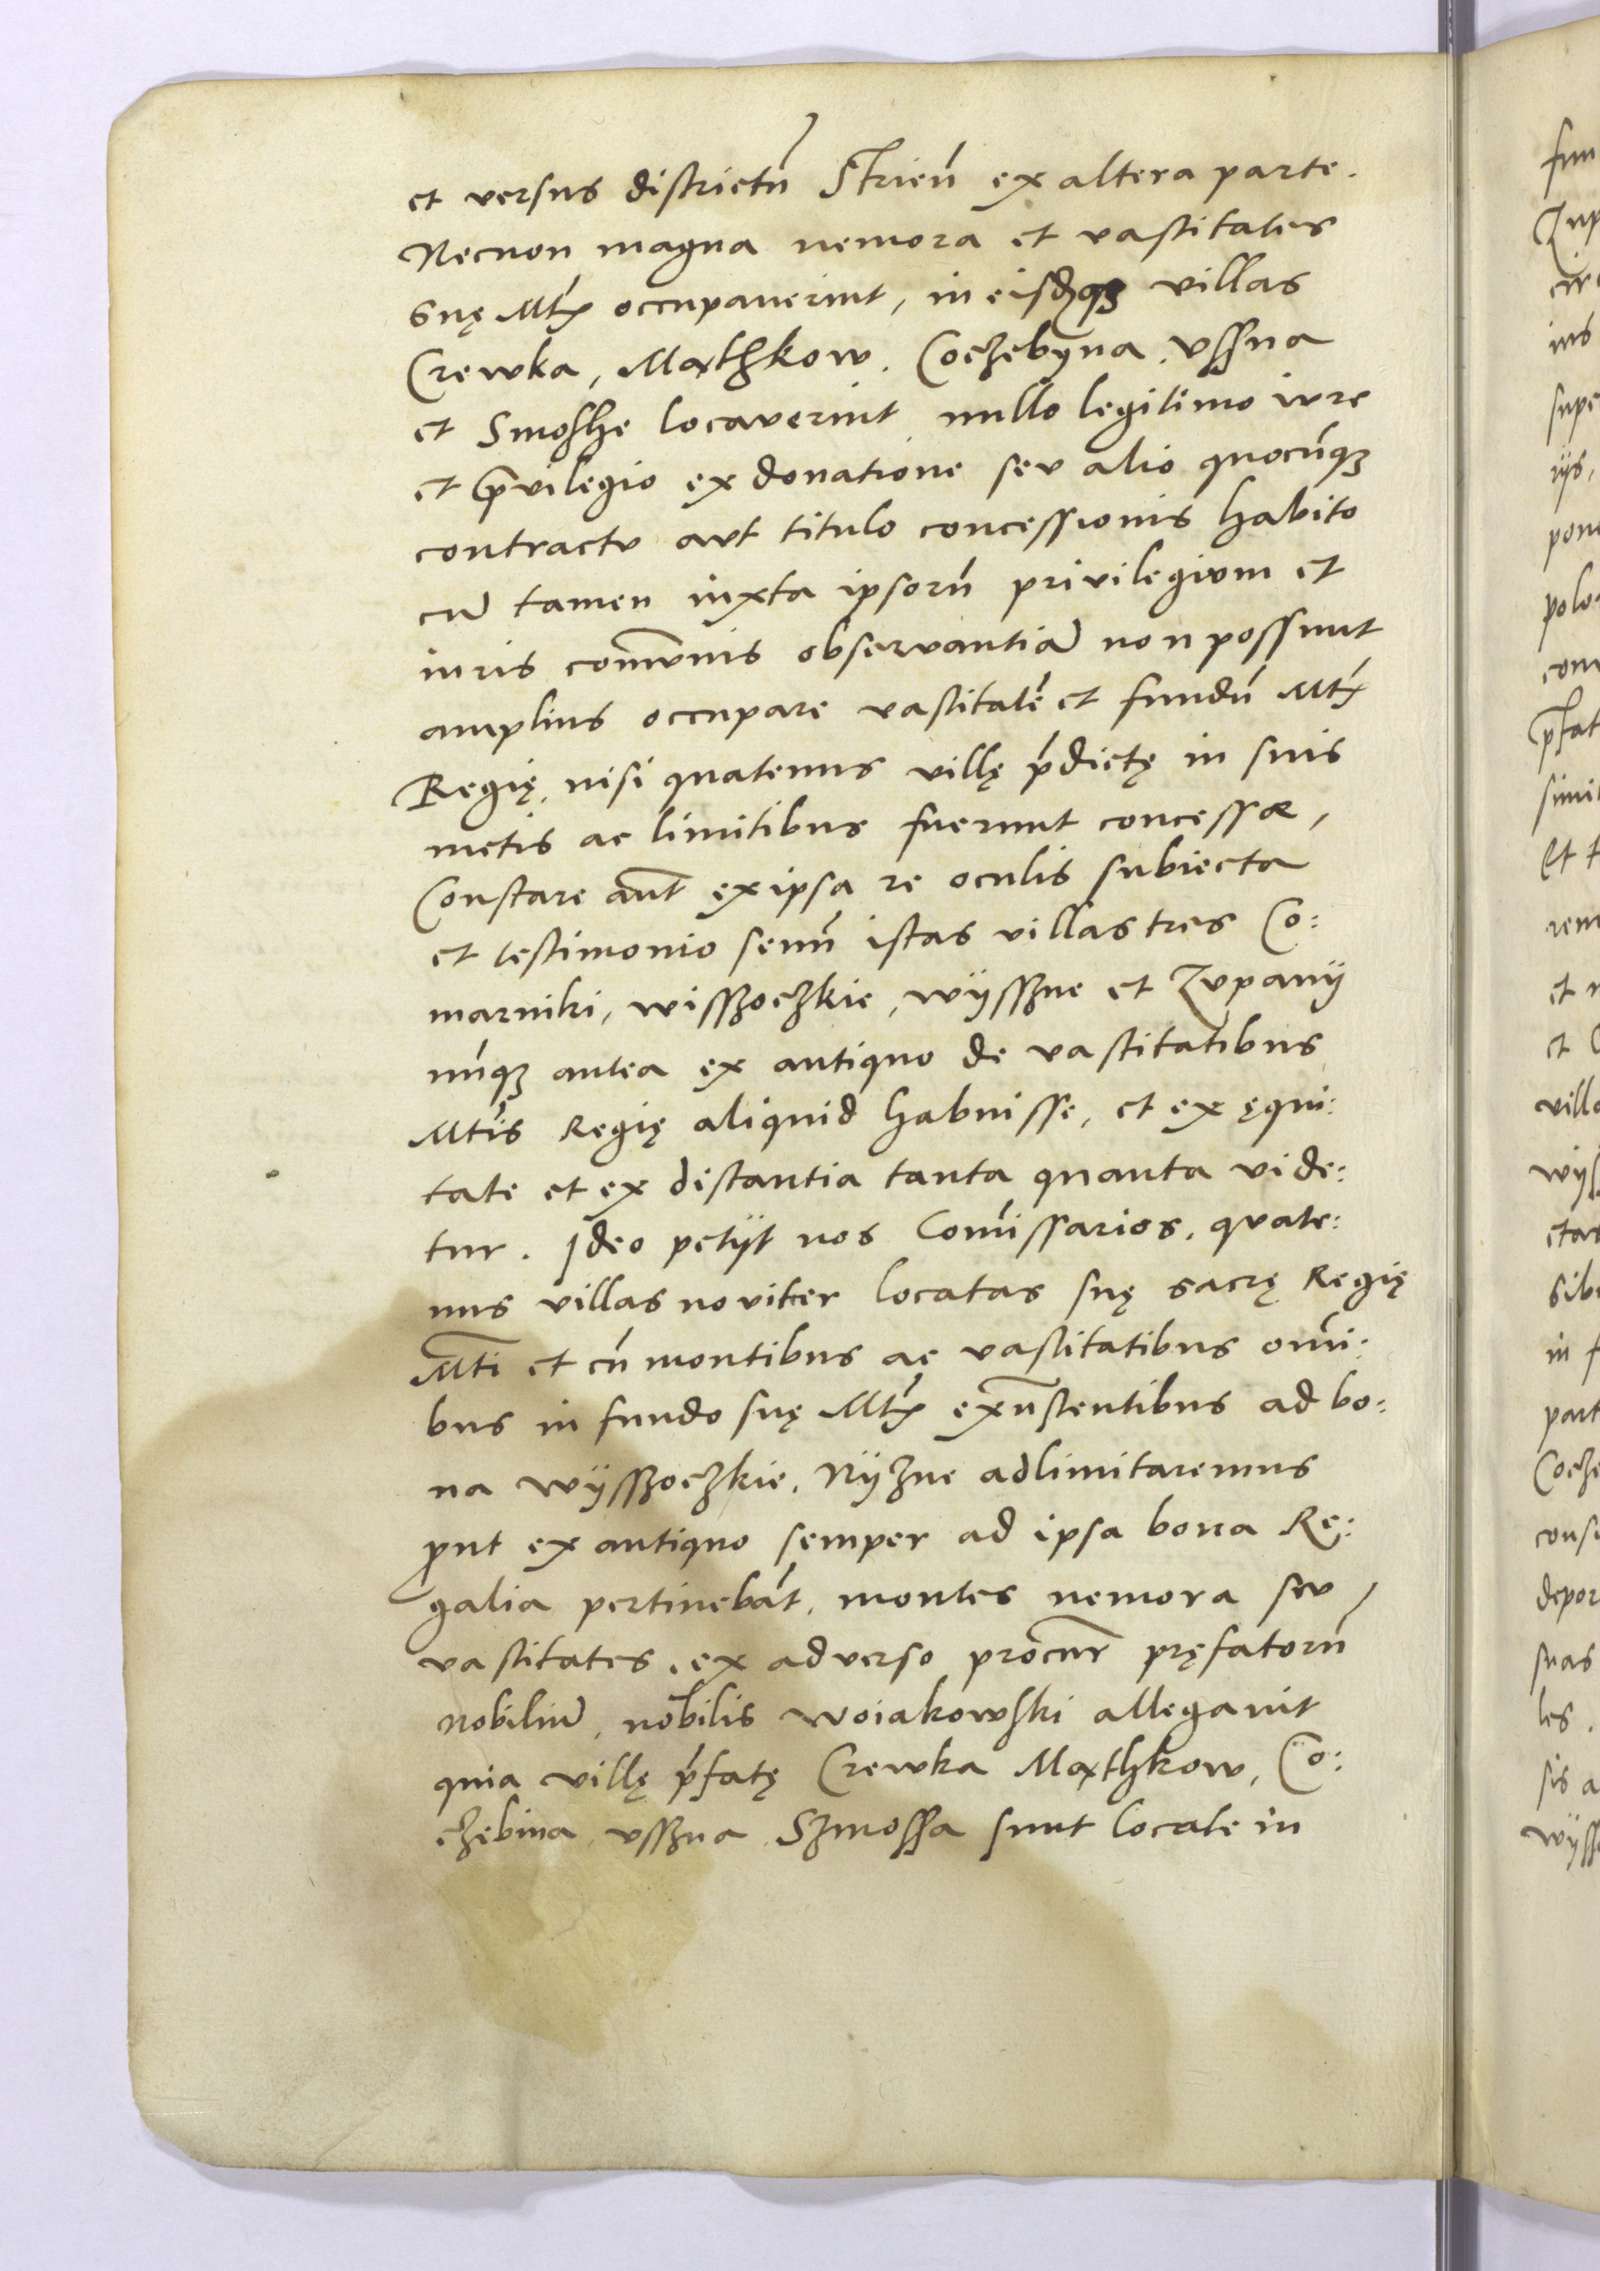 et versus districtū Strień ex altera parte.
Necnon magna nemora et vastitates
Suę Mtis occupaverint, in eisdemqȝ villas
Crewka, Mathkow. Coczebyna. Vssna
et Smoshe locaverint nullo legitimo iure
et pvilegio ex donatione seu alio quocūqȝ
contractu aut titulo concessionis habito
cū tamen iuxta ipsorū privilegium et
iuris comūnis observantiā non possunt
amplius occupare vastitatē et fundū Mtis
Regię, nisi quatenus villę pdictę in suis
metis ac limitibus fuerunt concessæ,
Constare aūt ex ipsa re oculis subiecta
et testimonio senū istas villas tres Co:
marniki, wisszoczkie, wÿsszne et Zupanÿ
nūqȝ antea ex antiquo de vastitatibus
Mtis Regię aliquid habuisse, et ex ęqui:
tate et ex distantia tanta quanta vide:
tur. Ideo petÿt nos Comissarios, quate:
nus villas noviter locatas suę sacrę Regię
Mti et cū montibus ac vastitatibus omī:
bus in fundo suę Mtis exnstentibus ad bo:
na wÿsszoczkie. Nÿzne adlimitaremus
put ex antiquo semper ad ipsa bona Re:
galia pertinebāt, montes nemora seu
vastitates, ex adverso procur pręfatorū
Nobiliū, nobilis woiakowski allegavit
quia villę pfatę Crewka Mathkow, Co:
czebina, vsszna Szmossa sunt locate in